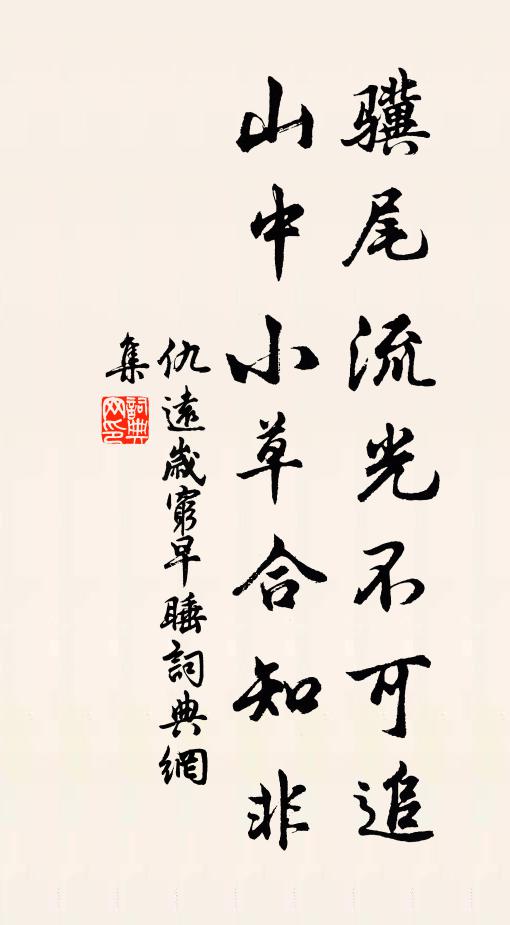 驥尾流光不可追
山中小草合知非
仇遠歲窮早睡詞典網
集
詞典網印